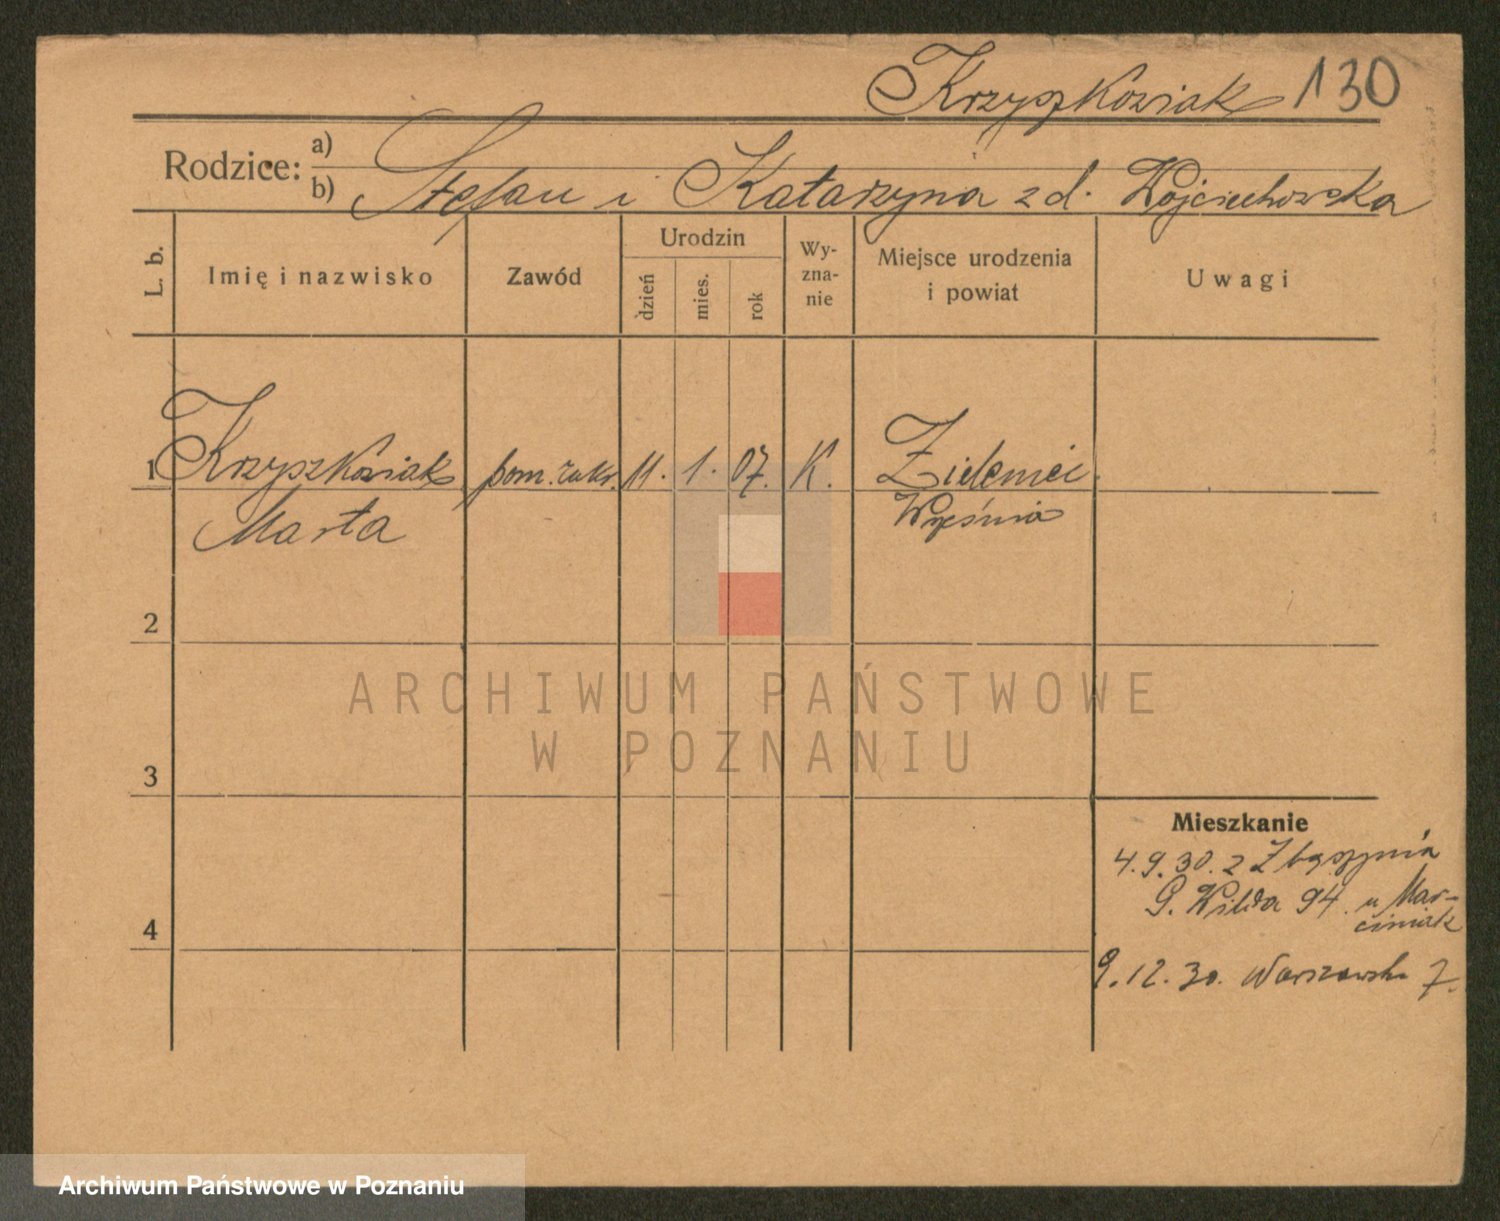 Krzyszkowiak 130
Rodzice: a)
b) Stefan i Katarzyna z d. Wojciechowska
L. b.
Imię i nazwisko
Zawód
Urodzin
dzień
mies.
rok
Wy-
zna-
nie
Miejsce urodzenia
i powiat
Uwagi
1 Krzyszkowiak pom. 11. 1. 07. K.
Marta Września
2
ARCHIWUM PAŃSTWOWE
W POZNANIU
3
Mieszkanie
4.9.30. z Zbąszynia
G. Wilda 94. u Mar-
ciniak
4
9.12.30. Warszawska 7.
Archiwum Państwowe w Poznaniu